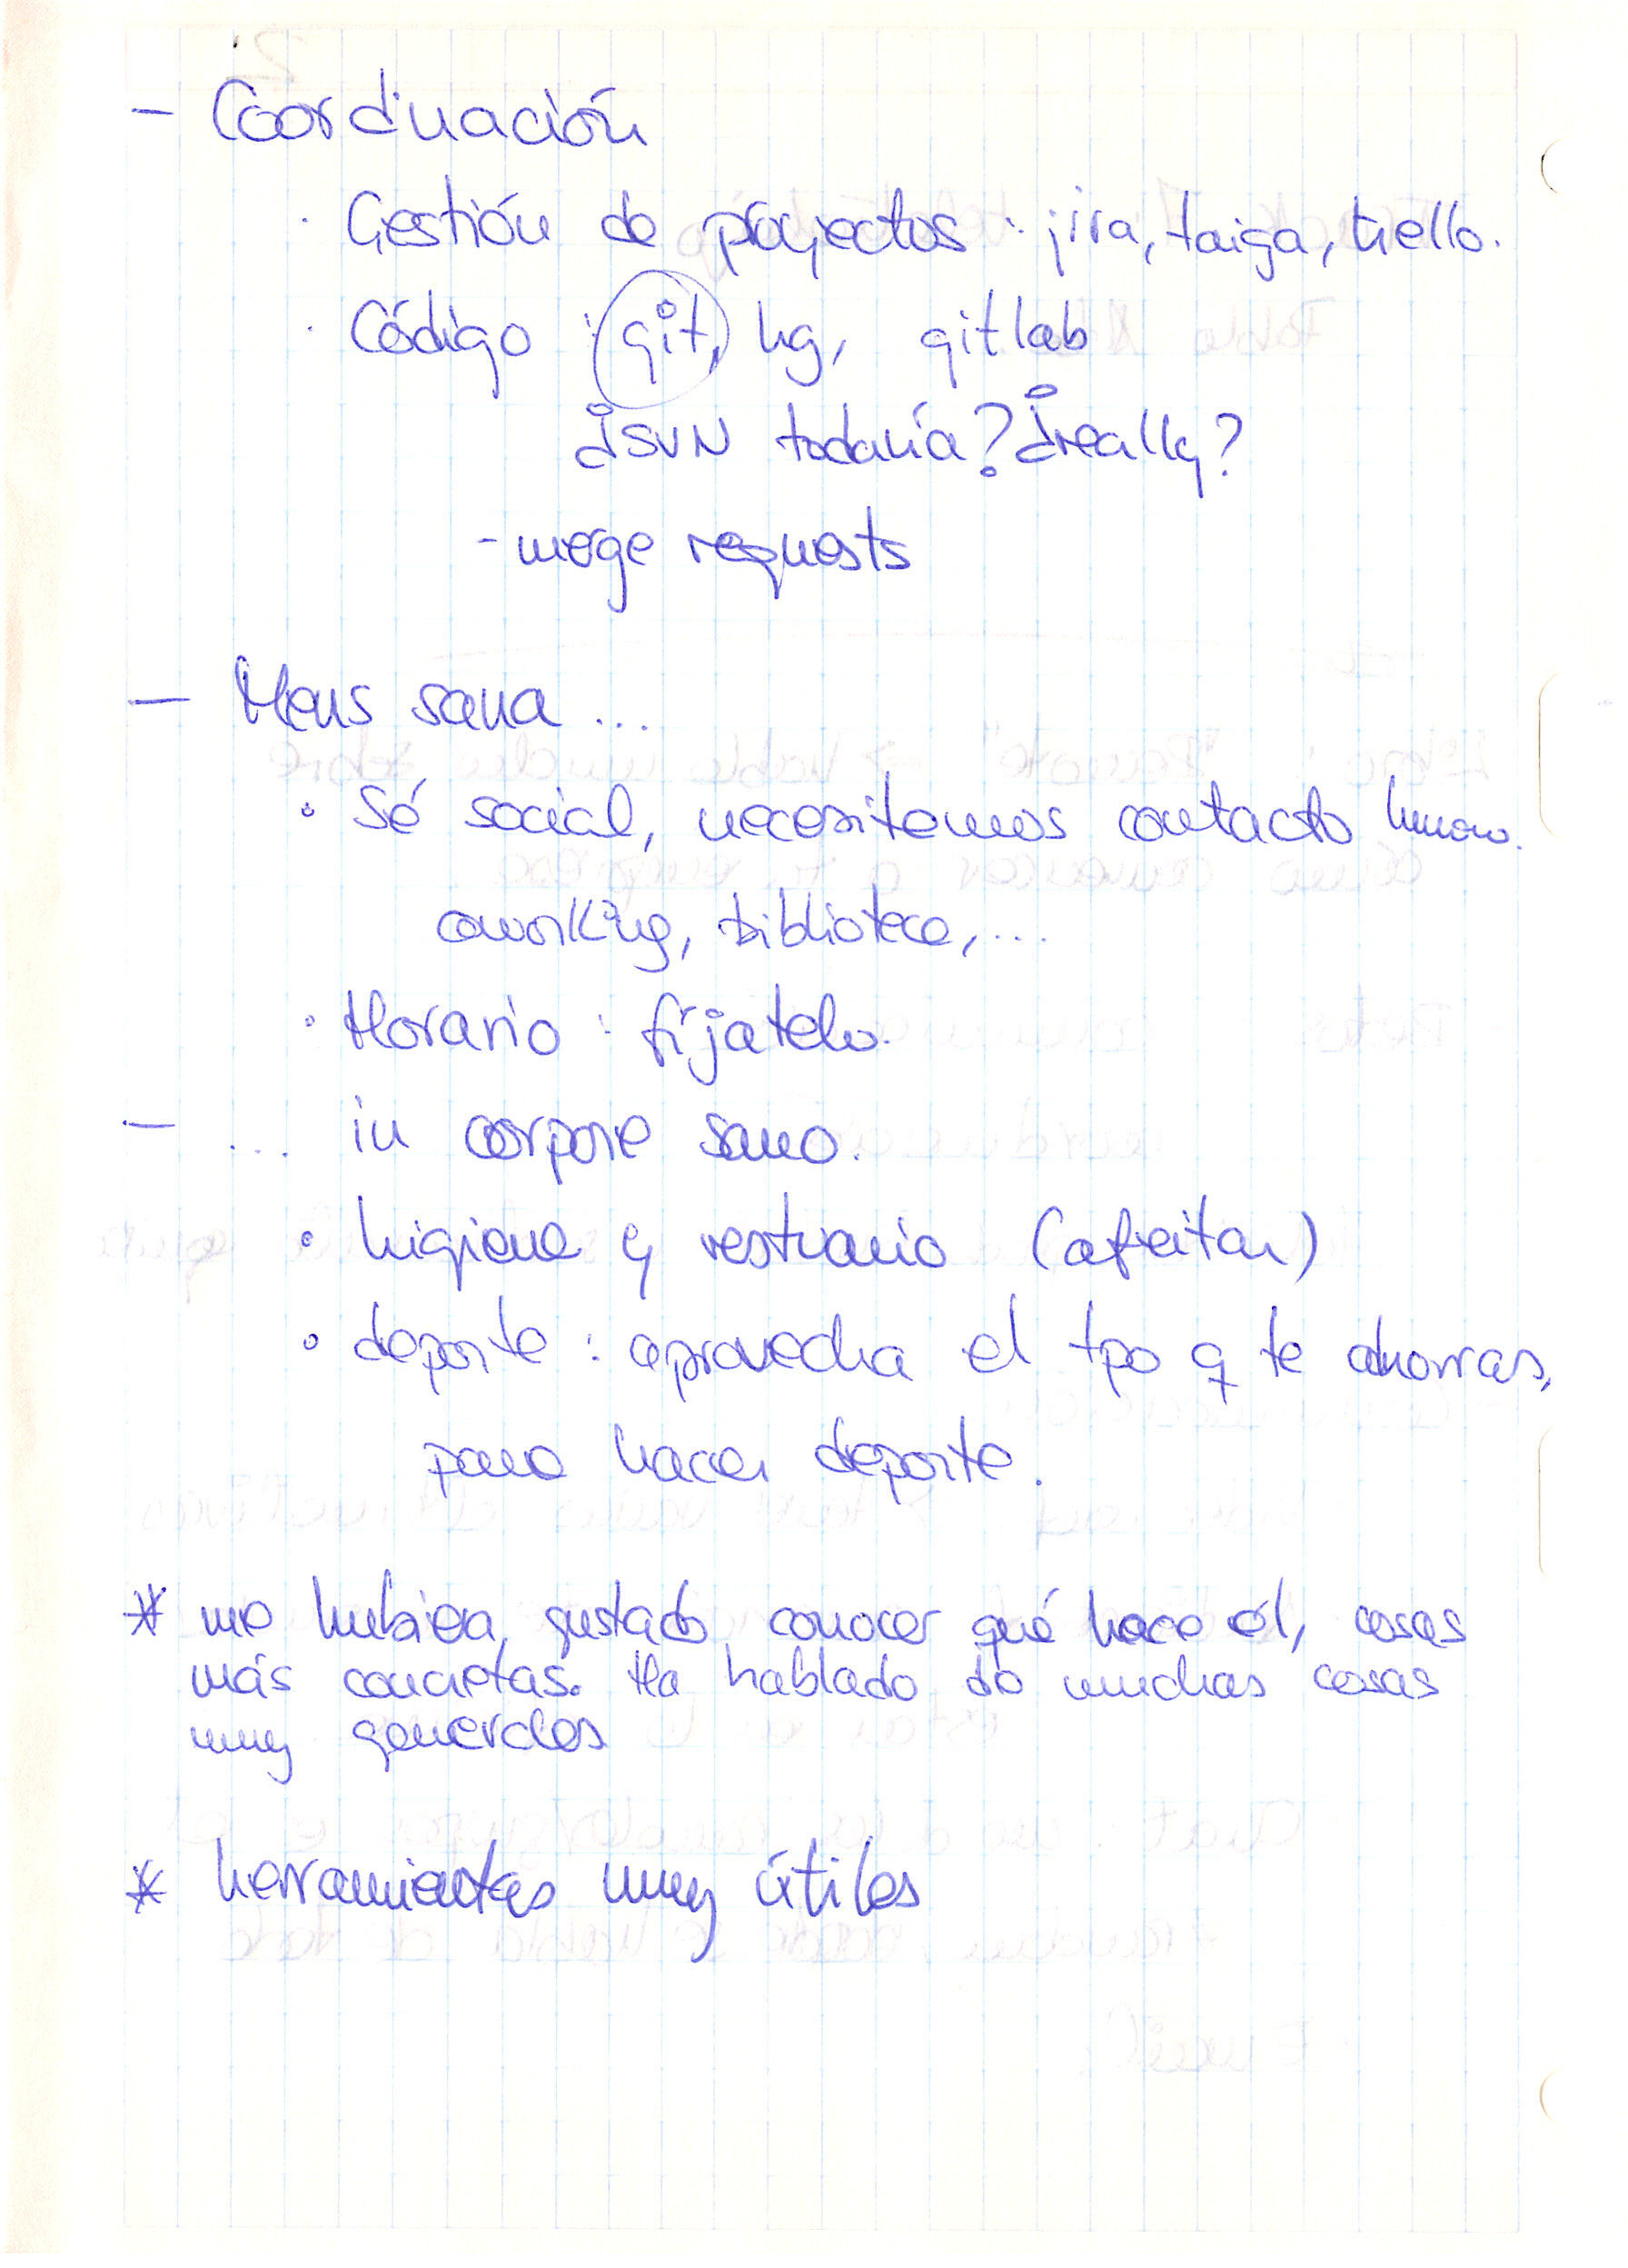 - Coordinación
· Gestión de proyectos : jira, taiga, trello.
· Código : git, hg, gitlab
¿SVN todavía? ¿really?
- merge requests
- Mens sana ...
· Sé social, necesitamos contacto humano.
coworking, biblioteca, ...
· Horario : fíjatelo.
- ... in corpore sano.
· higiene y vestuario (afeitar)
· deporte : aprovecha el tpo q te ahorras,
para hacer deporte.
* me hubiera gustado conocer qué hace él, cosas
más concretas. Ha hablado de muchas cosas
muy generales
* herramientas muy útiles